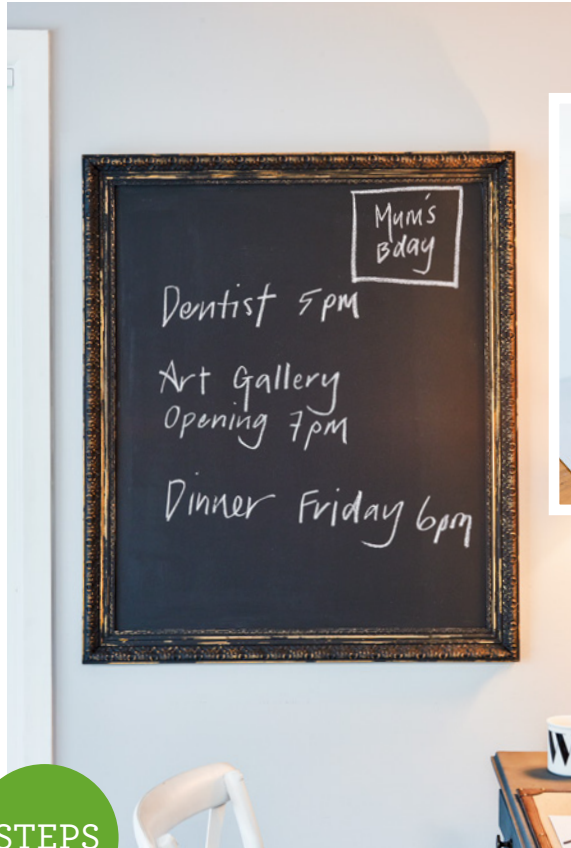 Mum's
B'day
Dentist 5pm
Art Gallery
Opening 7pm
Dinner Friday 6pm
STEPS